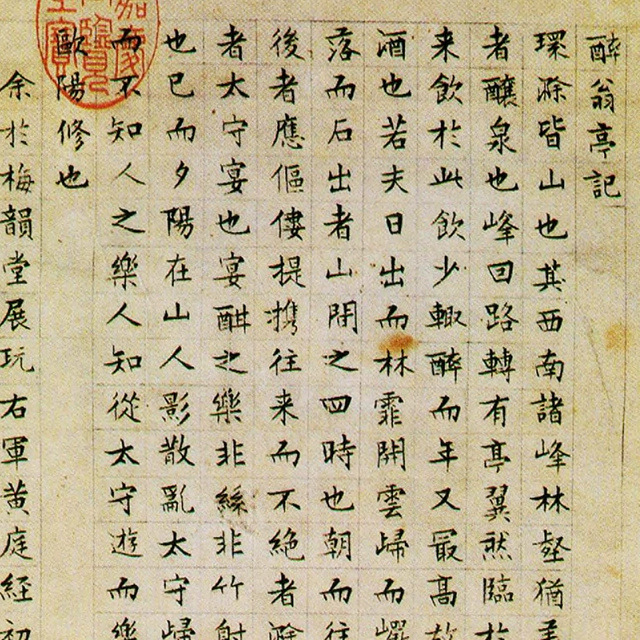 醉翁亭記
環滁皆山也其西南諸峰林壑猶
者釀泉也峰回路轉有亭翼然臨於
来飲於此飲少輙醉而年又最高故
酒也若夫日出而林霏開雲歸而巖
落而石出者山間之四時也朝而往
後者應傴僂提攜往来而不絕者滁
者太守宴也宴酣之樂非絲非竹射
也已而夕陽在山人影散亂太守歸
而不知人之樂人知從太守遊而樂
歐陽修也
余於梅韻堂展玩右軍黄庭經初